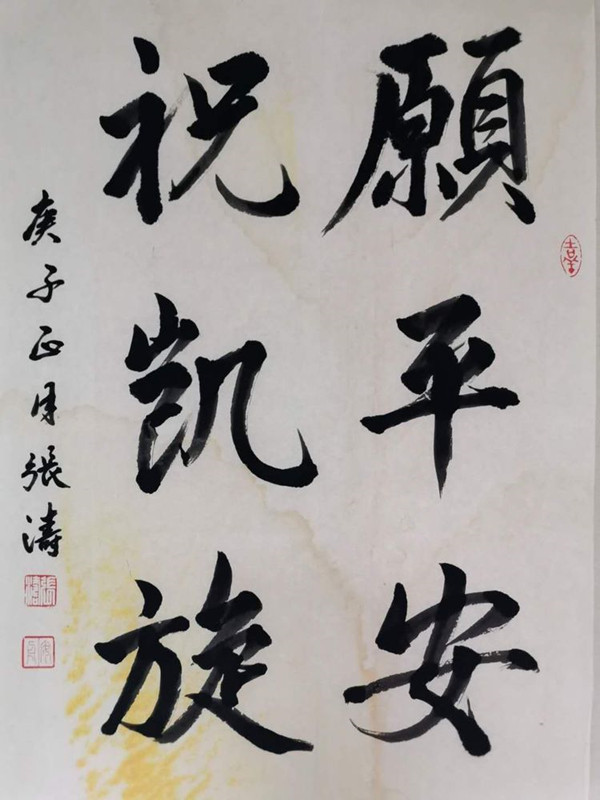 願平安
祝凱旋
庚子正月張濤